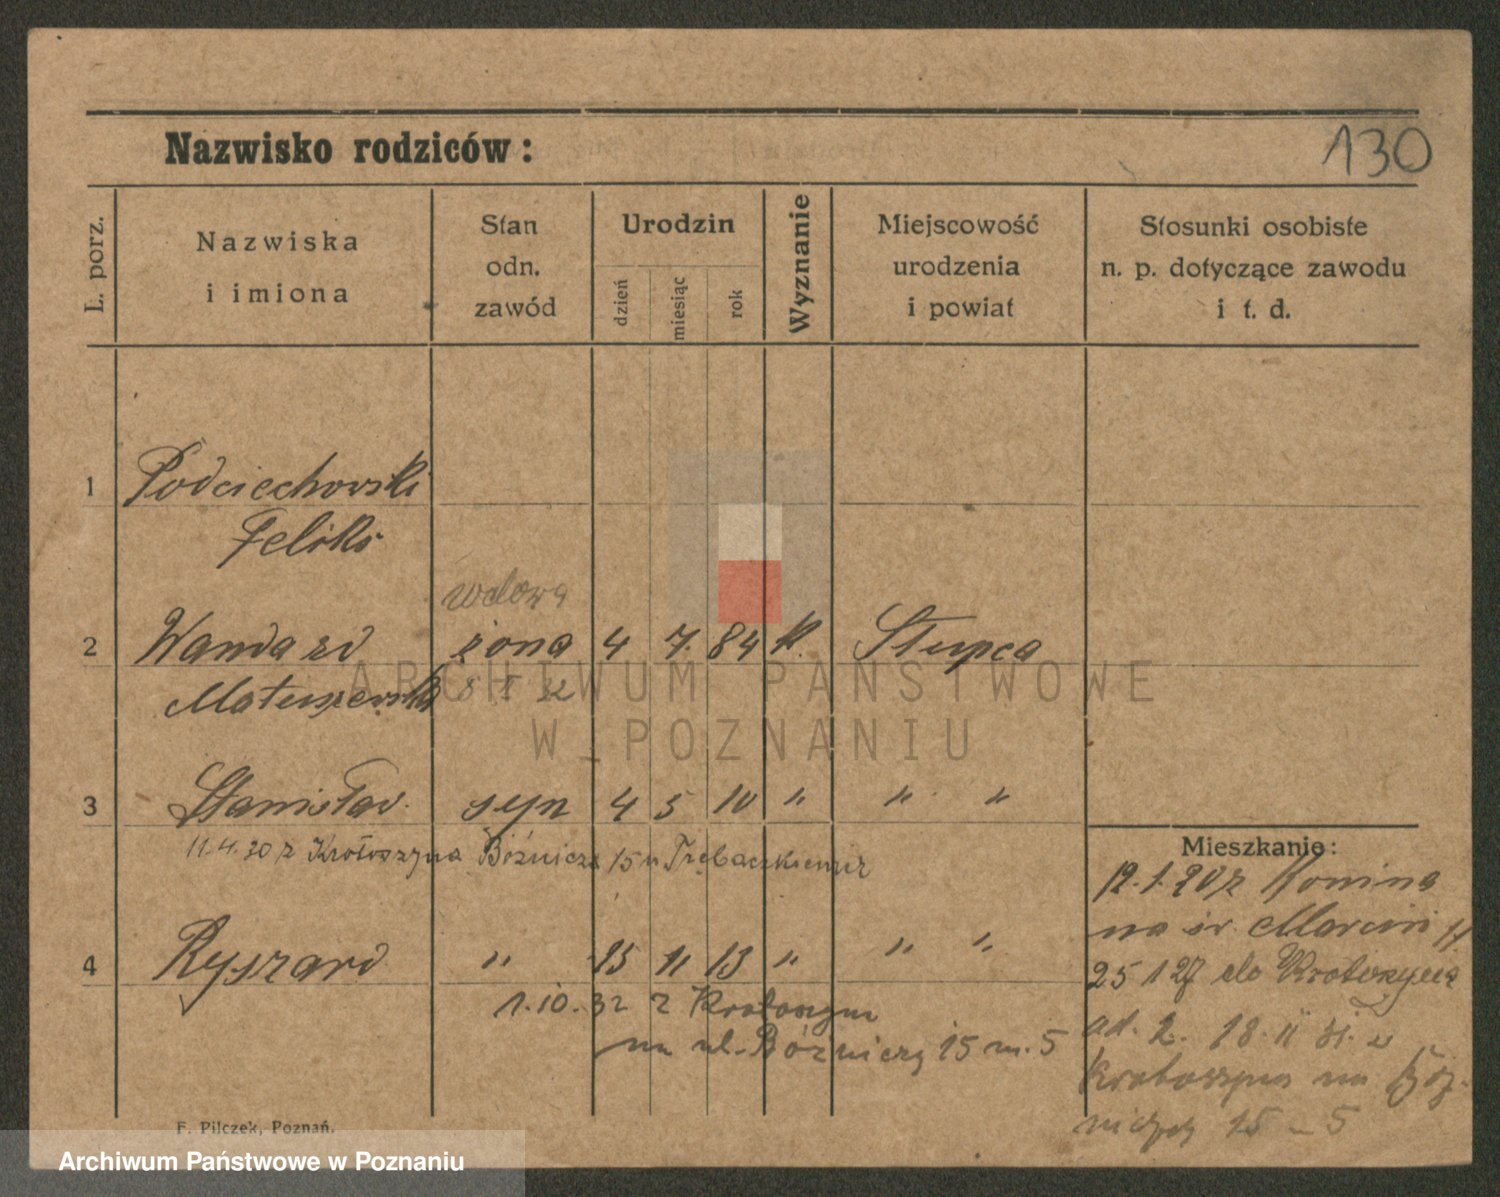 130
Nazwisko rodziców:
L. porz.
Nazwiska
i imiona
Stan
odn.
zawód
Urodzin
dzień
miesiąc
rok
Wyznanie
Miejscowość
urodzenia
i powiat
Stosunki osobiste
n. p. dotyczące zawodu
i t. d.
1 Podciechowski
Feliks
wdowa
2 Wanda zd żona 4 7. 84 k. Słupca
Matuszewska
3 Stanisław. syn 4 5 10 " " "
11.4.30 z Krotoszyna Bóźnicza 15 u
4 Ryszard " 15 11 13 " " "
1.10.32 z Krotoszyna
na ul. Bóźniczą 15 m. 5
Mieszkanie:
12.1.20 z Konina
na św Marcin
25 1 27 do Krotoszyna
ad. 2. 18. II 31. z
Krotoszyna na Bóź-
niczą 15 – 5
F. Pilczek, Poznań.
ARCHIWUM PAŃSTWOWE
W POZNANIU
Archiwum Państwowe w Poznaniu